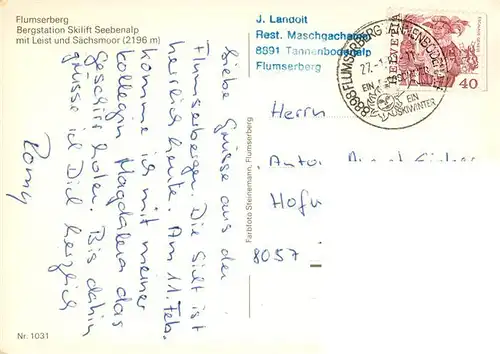 Flumserberg
Bergstation Skilift Seebenalp
mit Leist und Sächsmoor (2196 m)
J. Landolt
Rest. Maschgachamm
8891 Tannenbodenalp
Flumserberg
8898 FLUMSERBERG TANNENBODENALP
EIN
SKIWINTER
HELVETIA
40
Liebe Grüsse aus den
Flumserbergen. Die Sicht ist
herrlich heute. Am 11. Feb.
komme ich mit meiner
Kollegin Magdalena das
Geschirr holen. Bis dahin
grüsse ich Dich herzlich
Romy
Farbfoto Steinemann, Flumserberg
Herrn
Hofw
8057
Nr. 1031